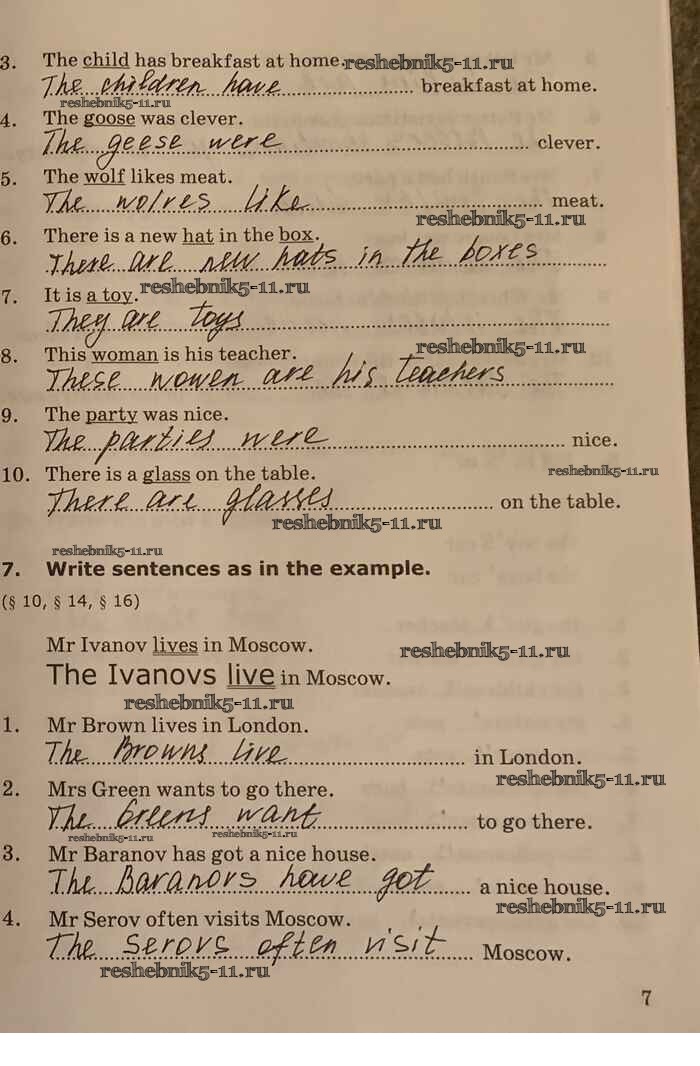 3. The child has breakfast at home. reshebnik5-11.ru
The children have breakfast at home.
reshebnik5-11.ru
4. The goose was clever.
The geese were clever.
5. The wolf likes meat.
The wolves like meat.
reshebnik5-11.ru
6. There is a new hat in the box.
There are new hats in the boxes
7. It is a toy. reshebnik5-11.ru
They are toys
reshebnik5-11.ru
8. This woman is his teacher.
These women are his teachers
9. The party was nice.
The parties were nice.
10. There is a glass on the table. reshebnik5-11.ru
There are glasses on the table.
reshebnik5-11.ru
reshebnik5-11.ru
7. Write sentences as in the example.
(§ 10, § 14, § 16)
Mr Ivanov lives in Moscow. reshebnik5-11.ru
The Ivanovs live in Moscow.
reshebnik5-11.ru
1. Mr Brown lives in London.
The Browns live in London.
reshebnik5-11.ru
2. Mrs Green wants to go there.
The Greens want to go there.
reshebnik5-11.ru reshebnik5-11.ru
3. Mr Baranov has got a nice house.
The Baranovs have got a nice house.
reshebnik5-11.ru
4. Mr Serov often visits Moscow.
The Serovs often visit Moscow.
reshebnik5-11.ru
7